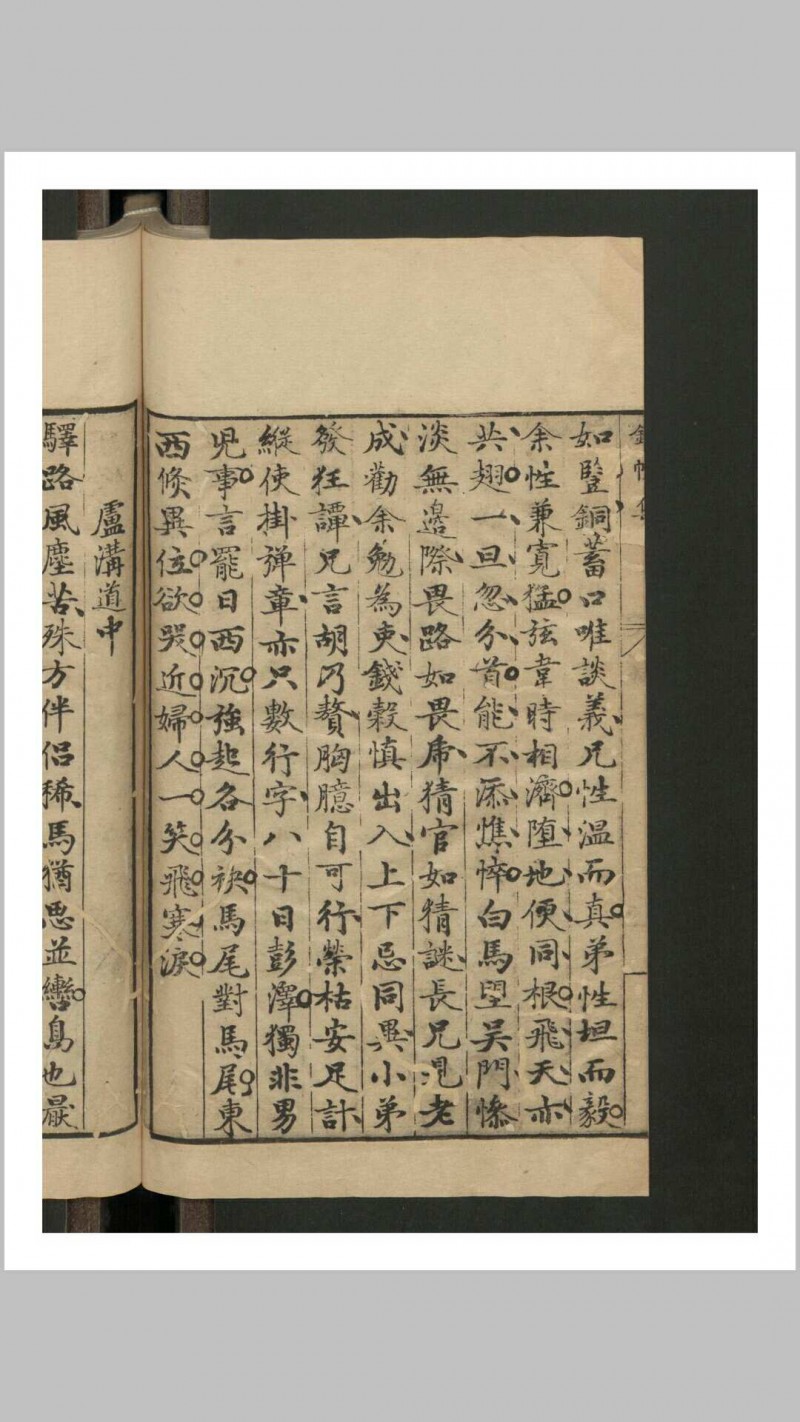 如豎銅蓄口唯談義兄性温而真弟性坦而毅
余性兼寛猛弦韋時相濟墮地便同根飛天亦
共翅一旦忽分首能不添憔悴白馬望吴門慘
淡無邊際畏路如畏虎猜官如猜謎長兄鬼老
成勸余勉為吏錢穀慎出入上下忌同異小弟
發狂譚兄言胡乃贅胸臆自可行榮枯安足計
縱使掛彈章亦只數行字八十日彭澤獨非男
兒事言罷日西沉強起各分袂馬尾對馬尾東
西倐異位欲哭近婦人一笑飛寒淚
盧溝道中
驛路風塵苦殊方伴侣稀馬猶思並轡鳥也厭